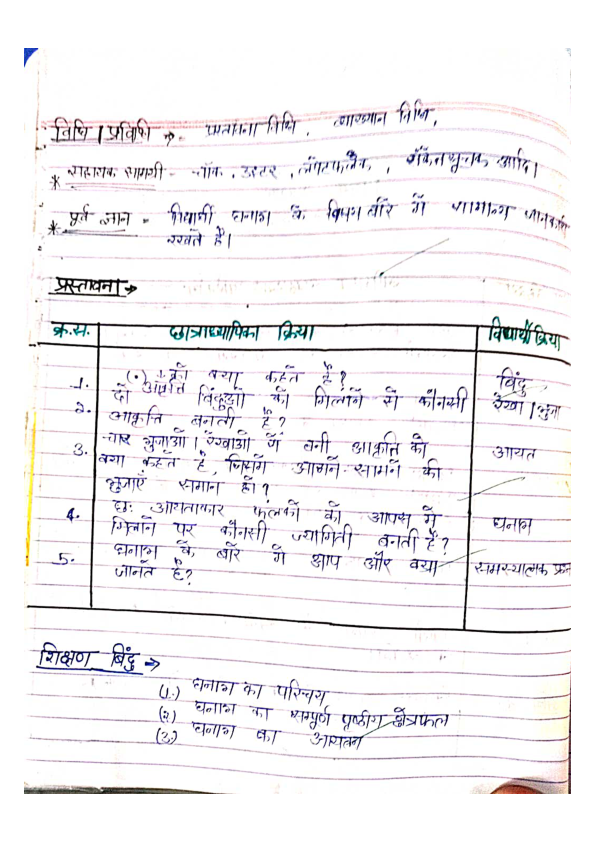 विधि / प्रविधि → प्रस्तावना विधि, व्याख्यान विधि,
* सहायक सामग्री - चॉक, डस्टर, लपेटफलक, संकेतसूचक आदि।
* पूर्व ज्ञान - विद्यार्थी घनाभ के विषय बारे में सामान्य जानकारी
रखते हैं।
प्रस्तावना →
क्र.स. छात्राध्यापिका क्रिया विद्यार्थी क्रिया
1. (•) को क्या कहते हैं? बिंदु
2. दो बिंदुओं को मिलाने से कौनसी रेखा / भुजा
आकृति बनती है?
3. चार भुजाओं / रेखाओं से बनी आकृति को आयत
क्या कहते है, जिसमें आमने-सामने की
भुजाएँ समान हो?
4. छः आयताकार फलकों को आपस में घनाभ
मिलाने पर कौनसी ज्यामिती बनती है?
5. घनाभ के बारे में आप और क्या समस्यात्मक प्रश्न
जानते है?
शिक्षण बिंदु →
(1.) घनाभ का परिचय
(2) घनाभ का सम्पूर्ण पृष्ठीय क्षेत्रफल
(3) घनाभ का आयतन